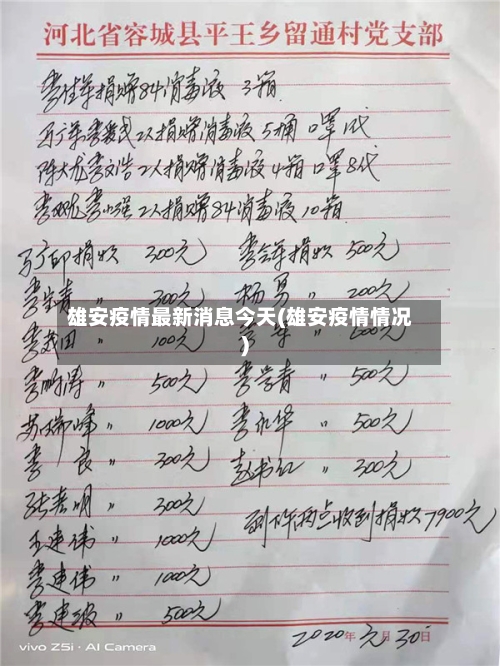 河北省容城县平王乡留通村党支部
捐赠84消毒液 3箱
2人捐赠消毒液 5桶 口罩1代
陈大龙李文浩2人捐赠消毒液4箱 口罩8代
李小强2人捐赠84消毒液10箱
捐款 300元 捐款 500元
〃 300元 杨男 〃 200元
雄安疫情最新消息今天(雄安疫情情况
)
〃 100元 〃
〃 500元 李学青 〃 500元
苏瑞峰 〃 1000元 李永华 〃 500元
李良 〃 300元 赵书红 〃 300元
张春明 〃 300元
到下午两点收到捐款7900元
王建伟 〃 1000元
李建伟 〃 1000元
李建波 〃 500元
2020年元月30日
vivo Z5i · AI Camera